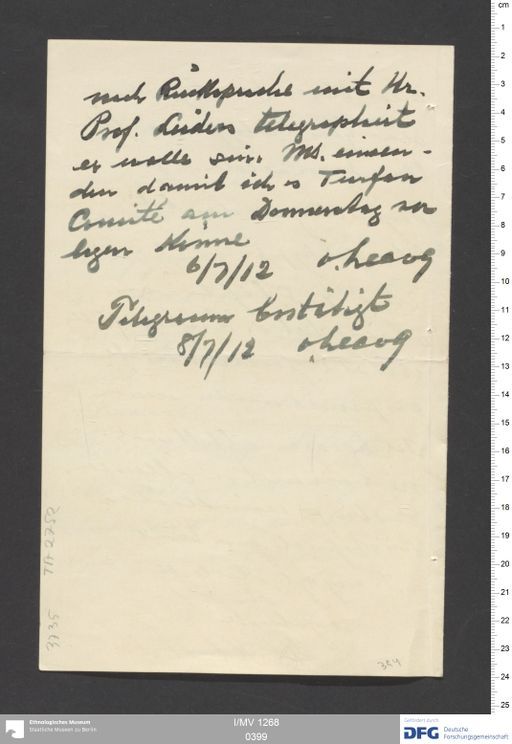 nach Rücksprache mit Hr.
Prof. Lüders telegraphiert
er wolle sein Ms. einsen-
den damit ich es Turfan
Comité am Donnerstag vor
legen könne
6/7/12 v. LeCoq
Telegramm bestätigt
8/7/12 v. LeCoq
3735 TA 2752
394
Ethnologisches Museum
Staatliche Museen zu Berlin
I/MV 1268
0399
Gefördert durch
DFG Deutsche
Forschungsgemeinschaft
cm
1
2
3
4
5
6
7
8
9
10
11
12
13
14
15
16
17
18
19
20
21
22
23
24
25